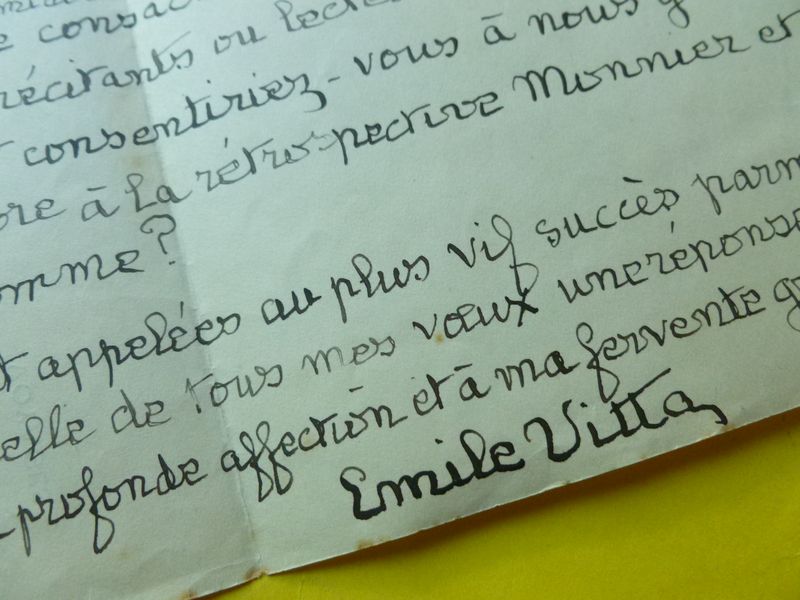 e consac
récitants ou lecte
consentiriez-vous à nous
ore à la rétrospective Monnier et
omme?
appelées au plus vif succès parm
elle de tous mes vœux une réponse
profonde affection et à ma fervente g
Emile Vitta